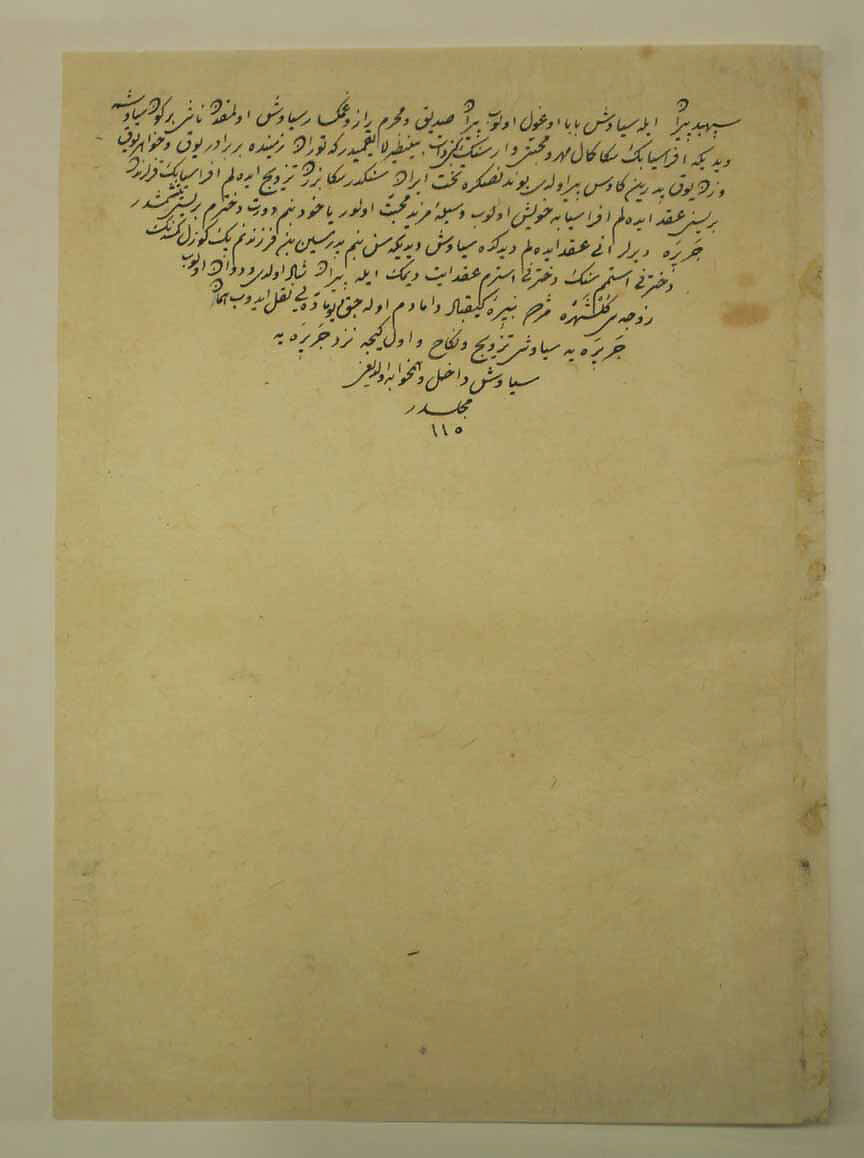 سپهبد پیران ایله سیاوش بابا اوغول اولوب پیران صدیق و محرم راز و غمکسار سیاوش اولمغدن ناشی برکون سیاوشه
دیدیکه افراسیابک سکا کمال مهر و محبتی وار سنک توران زمینده برادر یوق و خواهر یوق
و زن یوق پدرین کاوس پیر اولدی بوندنصکره تخت ایران سنکدر سکا بر زن تزویج ایده لم افراسیابک قزلرندن
بریسنی عقد ایده لم افراسیابه خویش اولوب وسیلهٔ مزید محبت اولور یاخود بنم دورت دخترم
جریره دیرلر انی عقد ایده لم دیدکده سیاوش دیدیکه سن بنم پدرمسین بن فرزندنم بک کوزل کمسنه نک
دخترنی استمم سنک دخترنی استرم عقد ایت دیمک ایله پیران شاد اولدی و روان اولوب
زوجه سی کلشهره مژده نبیرهٔ کیقباد دامادم اوله جق نقل ایدوب همان
جریره یه سیاوشی تزویج و نکاح و اول کیجه نزد جریره یه
سیاوش داخل و همخوابه اولدیغی
مجلسدر
١١٥